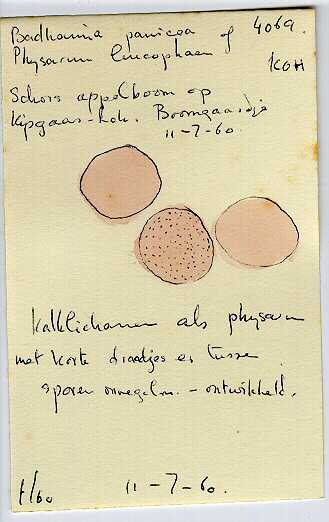 Badhamia panicea of 4069.
Physarum leucophaeu
KOH
Schors appelboom op
Kipgaas-hok. Boomgaardje
11-7-60.
Kalklichamen als physarum
met korte draadjes er tussen
sporen onregelm. - ontwikkeld.
11-7-60.